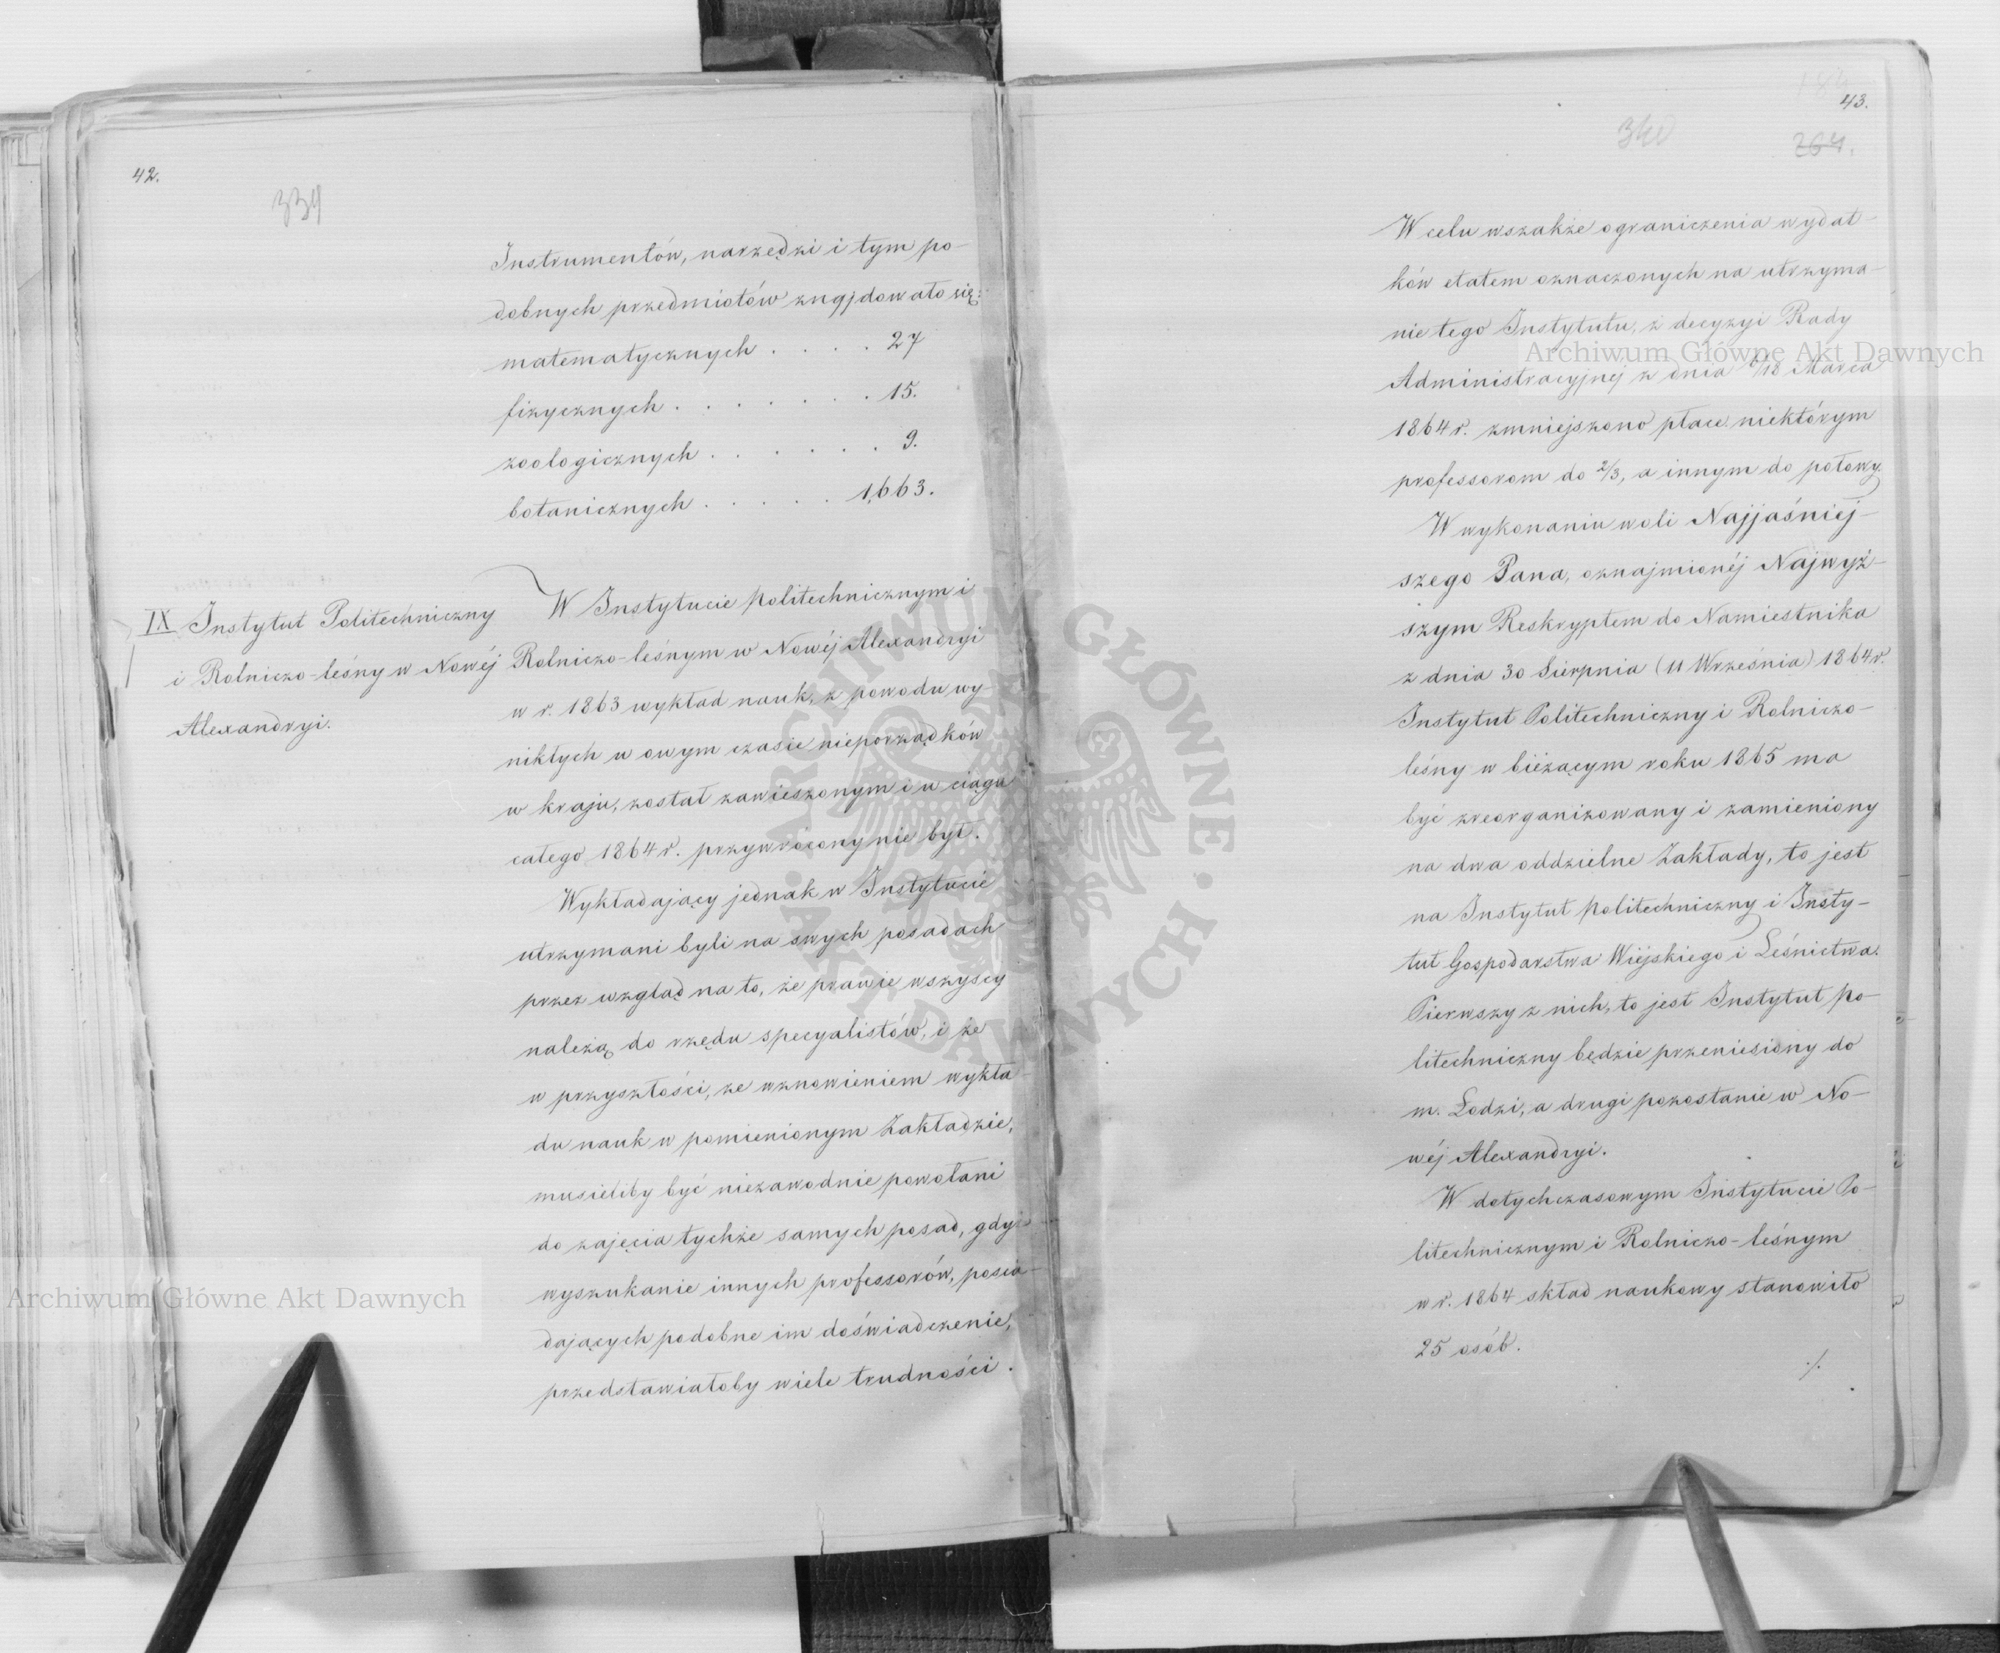 42.
339
Instrumentów, narzędzi i tym po-
dobnych przedmiotów znajdowało się:
matematycznych . . . . 27
fizycznych . . . . . . . 15.
zoologicznych . . . . . . 9.
botanicznych . . . . . 1,663.
IX Instytut Politechniczny
i Rolniczo-leśny w Nowéj
Alexandryi.
W Instytucie Politechnicznym i
Rolniczo-leśnym w Nowéj Alexandryi
w r. 1863 wykład nauk, z powodu wy-
nikłych w owym czasie nieporządków
w kraju, został zawieszonym i w ciągu
całego 1864 r. przywrócony nie był.
Wykładający jednak w Instytucie
utrzymani byli na swych posadach
przez wzgląd na to, że prawie wszyscy
należą do rzędu specyalistów, i że
w przyszłości, ze wznowieniem wykła-
du nauk w pomienionym Zakładzie,
musieliby być niezawodnie powołani
do zajęcia tychże samych posad, gdyż
wyszukanie innych professorów, posia-
dających podobne im doświadczenie,
przedstawiałoby wiele trudności.
43.
340
264.
W celu wszakże ograniczenia wydat-
ków etatem oznaczonych na utrzyma-
nie tego Instytutu, z decyzyi Rady
Administracyjnej z dnia 6/18 Marca
1864 r. zmniejszono płace niektórym
professorom do 2/3, a innym do połowy.
W wykonaniu woli Najjaśniej-
szego Pana, oznajmionéj Najwyż-
szym Reskryptem do Namiestnika
z dnia 30 Sierpnia (11 Września) 1864 r.
Instytut Politechniczny i Rolniczo-
leśny w bieżącym roku 1865 ma
być zreorganizowany i zamieniony
na dwa oddzielne Zakłady, to jest
na Instytut Politechniczny i Insty-
tut Gospodarstwa Wiejskiego i Leśnictwa.
Pierwszy z nich, to jest Instytut po-
litechniczny będzie przeniesiony do
m. Łodzi, a drugi pozostanie w No-
wéj Alexandryi.
W dotychczasowym Instytucie Po-
litechnicznym i Rolniczo-leśnym
w r. 1864 skład naukowy stanowiło
25 osób.
./.
Archiwum Główne Akt Dawnych
Archiwum Główne Akt Dawnych
ARCHIWUM GŁÓWNE · AKT DAWNYCH ·